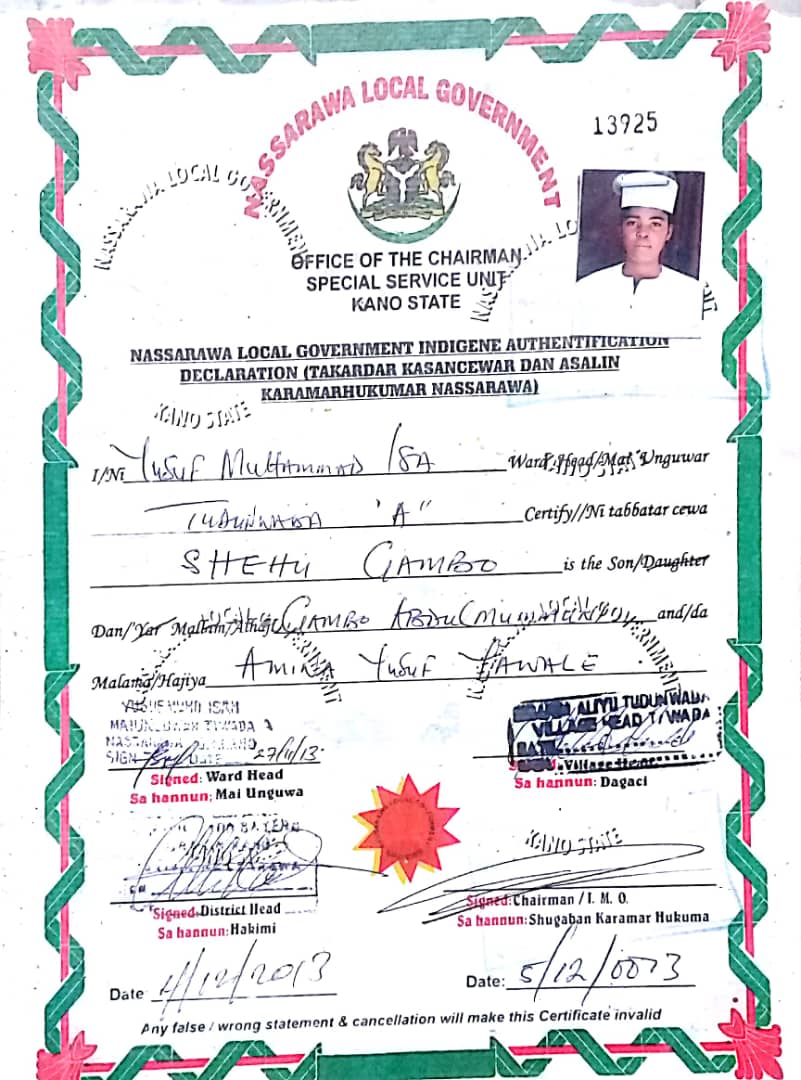 13925
NASSARAWA LOCAL GOVERNMENT
NASSARAWA LOCAL GOVERNMENT
OFFICE OF THE CHAIRMAN
SPECIAL SERVICE UNIT
KANO STATE
NASSARAWA LOCAL GOVERNMENT INDIGENE AUTHENTIFICATION
DECLARATION (TAKARDAR KASANCEWAR DAN ASALIN
KARAMARHUKUMAR NASSARAWA)
KANO STATE
I/Ni Yusuf Muhammad Isa Ward Head/Mai Unguwar
T/Wada 'A" Certify//Ni tabbatar cewa
SHEHU GAMBO is the Son/Daughter
Dan/'Yar Mallam/Alhaji GAMBO and/da
Malama/Hajiya AMINA YUSUF
27/11/13
ALIYU TUDUNWADA
VILLAGE HEAD T/WADA
Signed: Ward Head
Sa hannun: Mai Unguwa
Village Head
Sa hannun: Dagaci
KANO STATE
Signed: District Head
Sa hannun: Hakimi
Signed: Chairman / I. M. O.
Sa hannun: Shugaban Karamar Hukuma
Date 4/12/2013
Date: 5/12/0013
Any false / wrong statement & cancellation will make this Certificate invalid